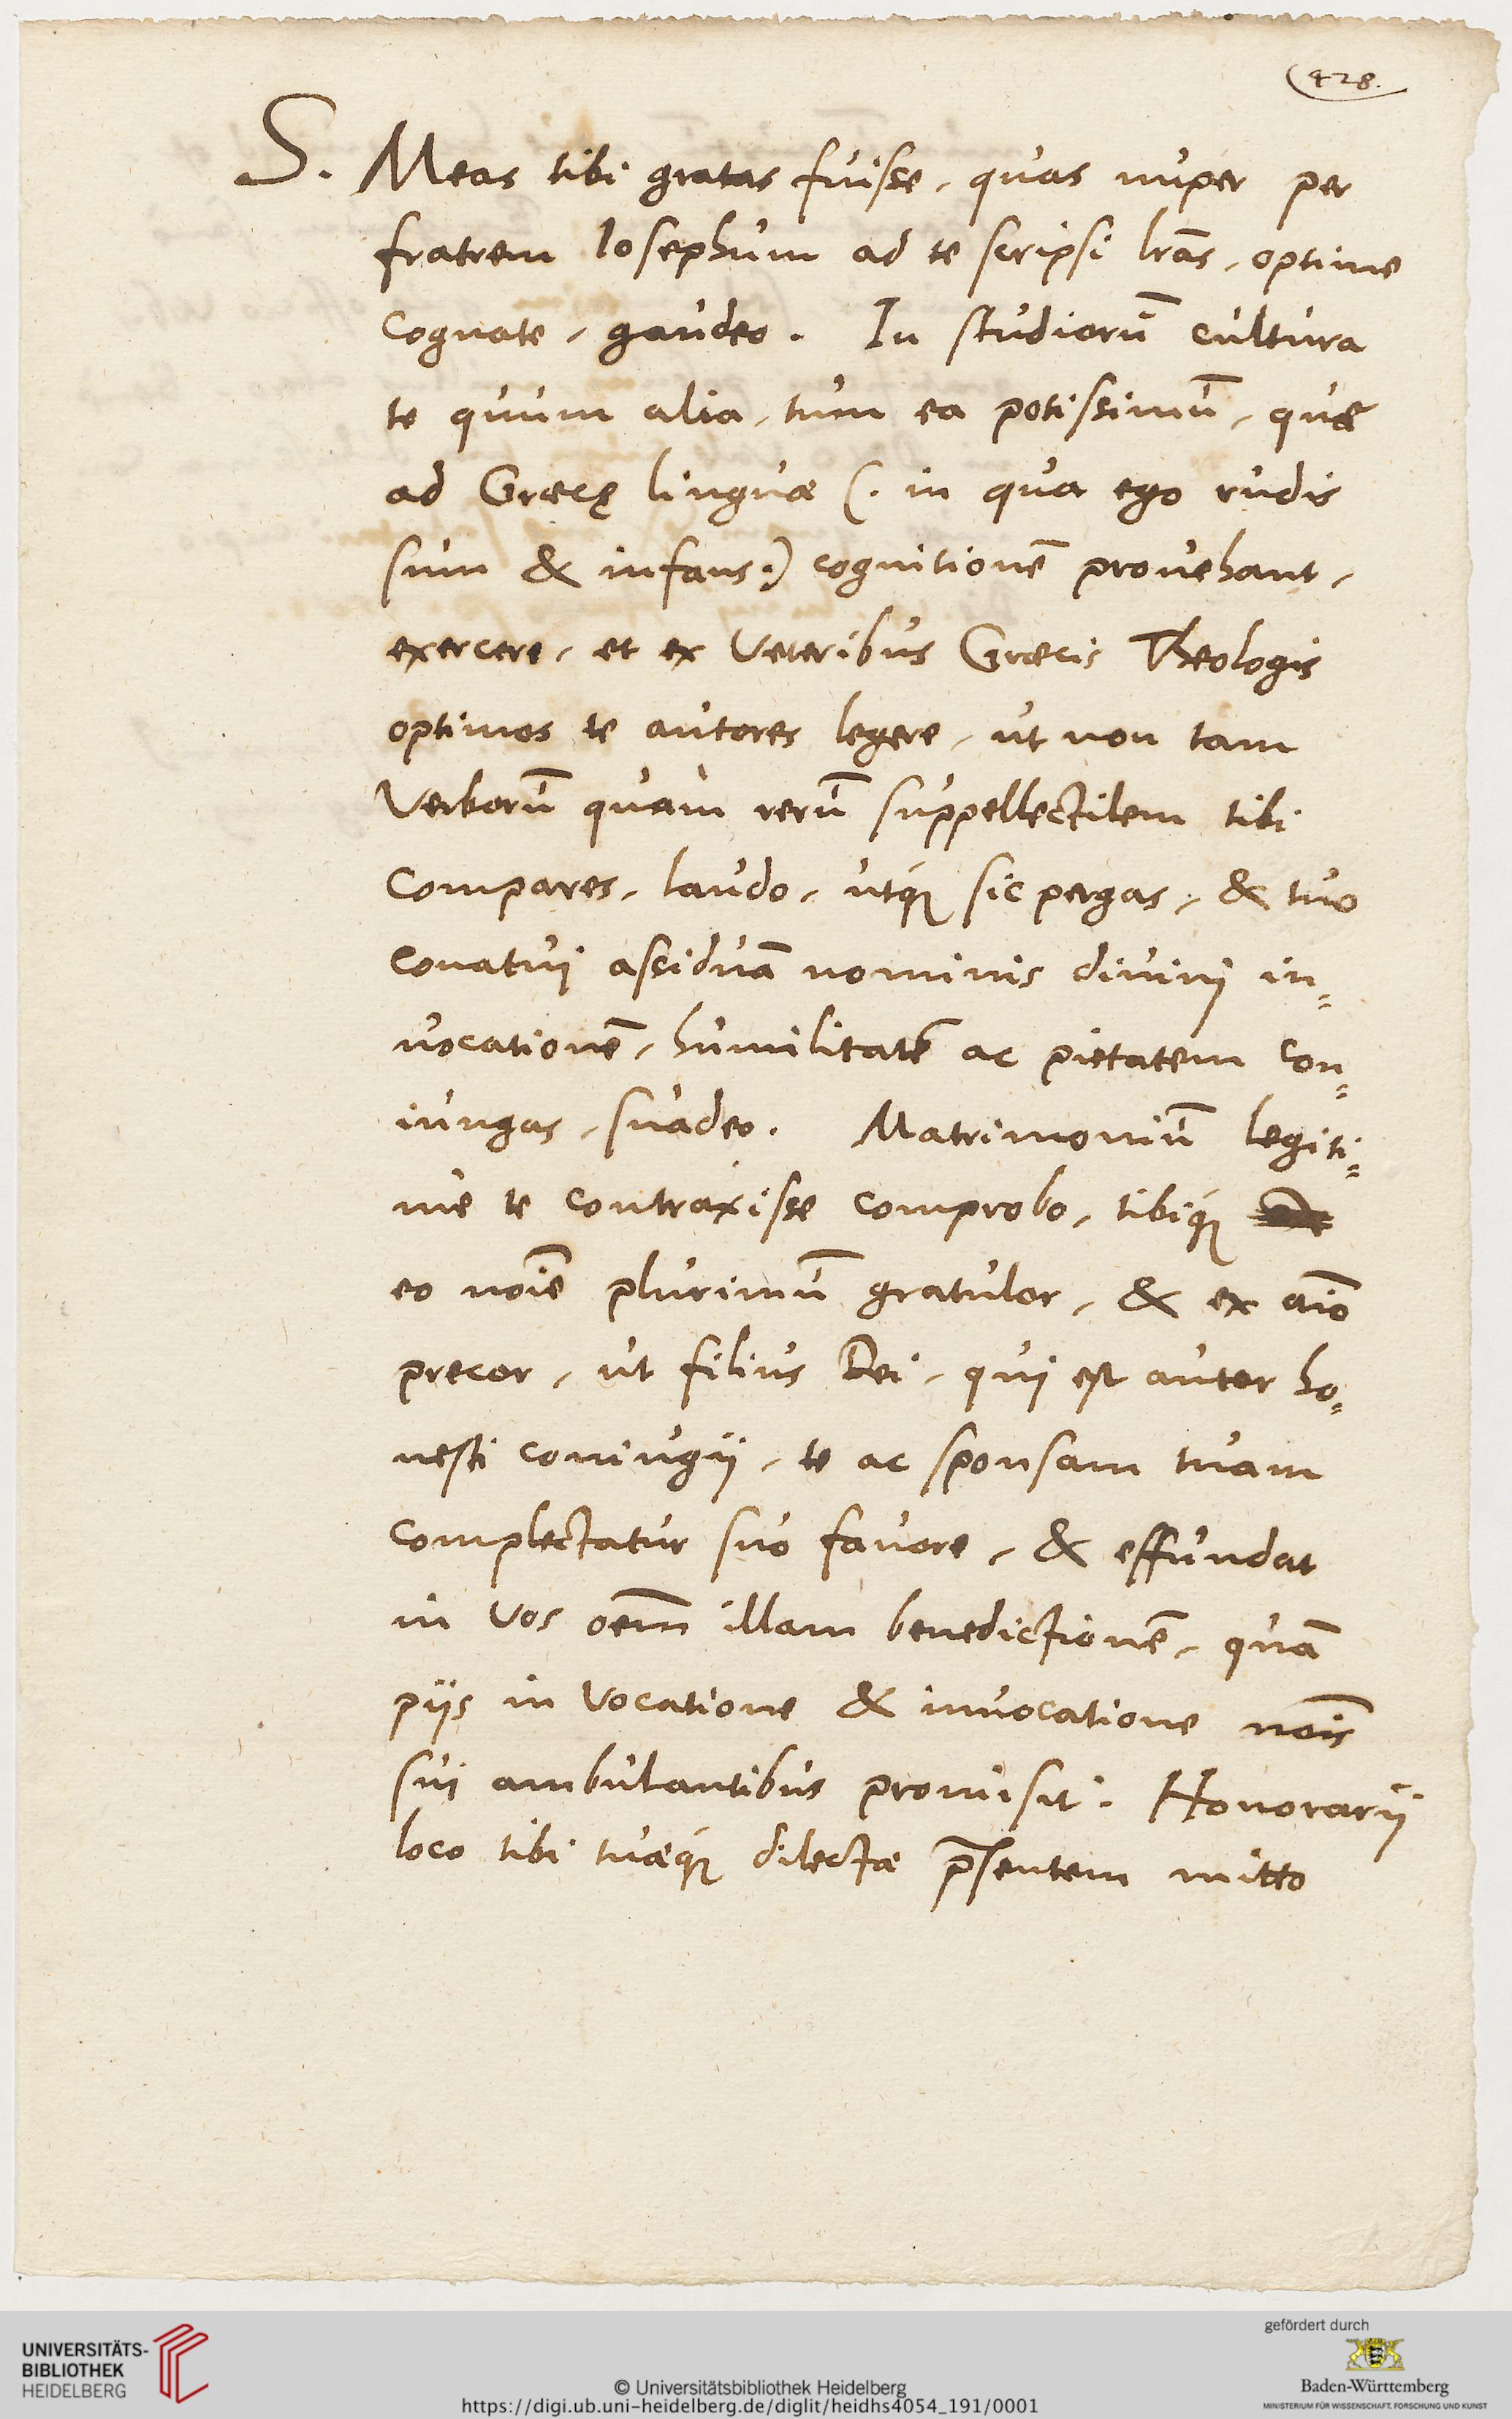 428.
S. Meas tibi gratas fuisse, quas nuper per
fratrem Iosephum ad te scripsi lr̄as, optime
cognate, gaudeo. In studiorū cultura
te quum alia, tum ea potissimū, quæ
ad Græcę linguæ (. in qua ego rudis
sum & infans.) cognitionē prouehant,
exercere, et ex veteribus Græcis Theologis
optimos te autores legere, ut non tam
verborū quam rerū suppellectilem tibi
compares, laudo, utq́ꝫ sic pergas, & tuo
conatui assiduā nominis diuinj in=
uocationē, humilitatē ac pietatem con=
iungas, suadeo. Matrimoniū legiti=
me te contraxisse comprobo, tibiq́ꝫ
eo noīe plurimū gratulor, & ex aīo
precor, ut filius Dei, quj est autor ho=
nesti coniugij, te ac sponsam tuam
complectatur suo fauore, & effundat
in vos oēm illam benedictionē, quā
pijs in vocatione & inuocatione noīs
suj ambulantibus promisit. Honorarij
loco tibi tuæq́ꝫ dilectæ p̄sentem mitto
UNIVERSITÄTS-
BIBLIOTHEK
HEIDELBERG
© Universitätsbibliothek Heidelberg
https://digi.ub.uni-heidelberg.de/diglit/heidhs4054_191/0001
gefördert durch
Baden-Württemberg
MINISTERIUM FÜR WISSENSCHAFT, FORSCHUNG UND KUNST